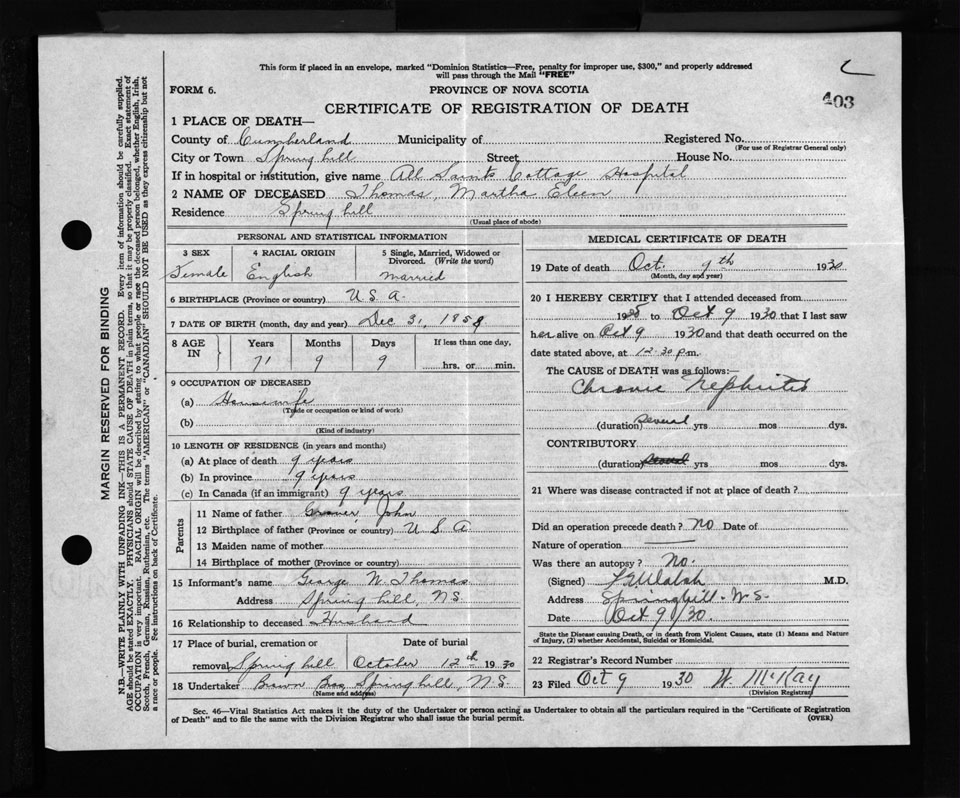 This form if placed in an envelope, marked "Dominion Statistics—Free, penalty for improper use, $300," and properly addressed
will pass through the Mail "FREE"
FORM 6.
PROVINCE OF NOVA SCOTIA
403
CERTIFICATE OF REGISTRATION OF DEATH
1 PLACE OF DEATH—
County of Cumberland Municipality of Registered No.
(For use of Registrar General only)
City or Town Spring hill Street House No.
If in hospital or institution, give name All Saints Cottage Hospital
2 NAME OF DECEASED Thomas, Martha Elen
Residence Spring hill
(Usual place of abode)
PERSONAL AND STATISTICAL INFORMATION
3 SEX 4 RACIAL ORIGIN 5 Single, Married, Widowed or
Divorced. (Write the word)
Female English married
6 BIRTHPLACE (Province or country) U.S.A.
7 DATE OF BIRTH (month, day and year) Dec 31, 1858
8 AGE IN Years Months Days If less than one day,
71 9 9 hrs. or min.
9 OCCUPATION OF DECEASED
(a) Housewife
(Trade or occupation or kind of work)
(b)
(Kind of industry)
10 LENGTH OF RESIDENCE (in years and months)
(a) At place of death 9 years
(b) In province 9 years
(c) In Canada (if an immigrant) 9 years
Parents
11 Name of father John
12 Birthplace of father (Province or country) U S A
13 Maiden name of mother
14 Birthplace of mother (Province or country)
15 Informant's name George W. Thomas
Address Spring hill, N.S.
16 Relationship to deceased Husband
17 Place of burial, cremation or Date of burial
removal Spring hill October 12th 1930
18 Undertaker Brown Bros, Spring hill, N.S.
(Name and address)
MEDICAL CERTIFICATE OF DEATH
19 Date of death Oct. 9th 1930
(Month, day and year)
20 I HEREBY CERTIFY that I attended deceased from
19 to Oct 9 1930 that I last saw
her alive on Oct 9 1930 and that death occurred on the
date stated above, at 12.30 p.m.
The CAUSE of DEATH was as follows:—
Chronic Nephritis
(duration) several yrs mos dys.
CONTRIBUTORY
(duration) yrs mos dys.
21 Where was disease contracted if not at place of death?
Did an operation precede death? No Date of
Nature of operation —
Was there an autopsy? No.
(Signed) Walsh M.D.
Address Springhill - N.S.
Date Oct 9/30.
State the Disease causing Death, or in death from Violent Causes, state (1) Means and Nature
of Injury, (2) whether Accidental, Suicidal or Homicidal.
22 Registrar's Record Number
23 Filed Oct 9 1930 W. McKay
(Division Registrar)
Sec. 46—Vital Statistics Act makes it the duty of the Undertaker or person acting as Undertaker to obtain all the particulars required in the "Certificate of Registration
of Death" and to file the same with the Division Registrar who shall issue the burial permit. (OVER)
MARGIN RESERVED FOR BINDING
N.B.—WRITE PLAINLY WITH UNFADING INK—THIS IS A PERMANENT RECORD. Every item of information should be carefully supplied.
AGE should be stated EXACTLY. PHYSICIANS should STATE CAUSE OF DEATH in plain terms, so that it may be properly classified. Exact statement of
OCCUPATION is very important. RACIAL ORIGIN will be described by stating to what people or race the deceased person belonged, whether English, Irish,
Scotch, French, German, Russian, Ruthenian, etc. The terms "AMERICAN" or "CANADIAN" SHOULD NOT BE USED as they express citizenship but not
a race or people. See instructions on back of Certificate.